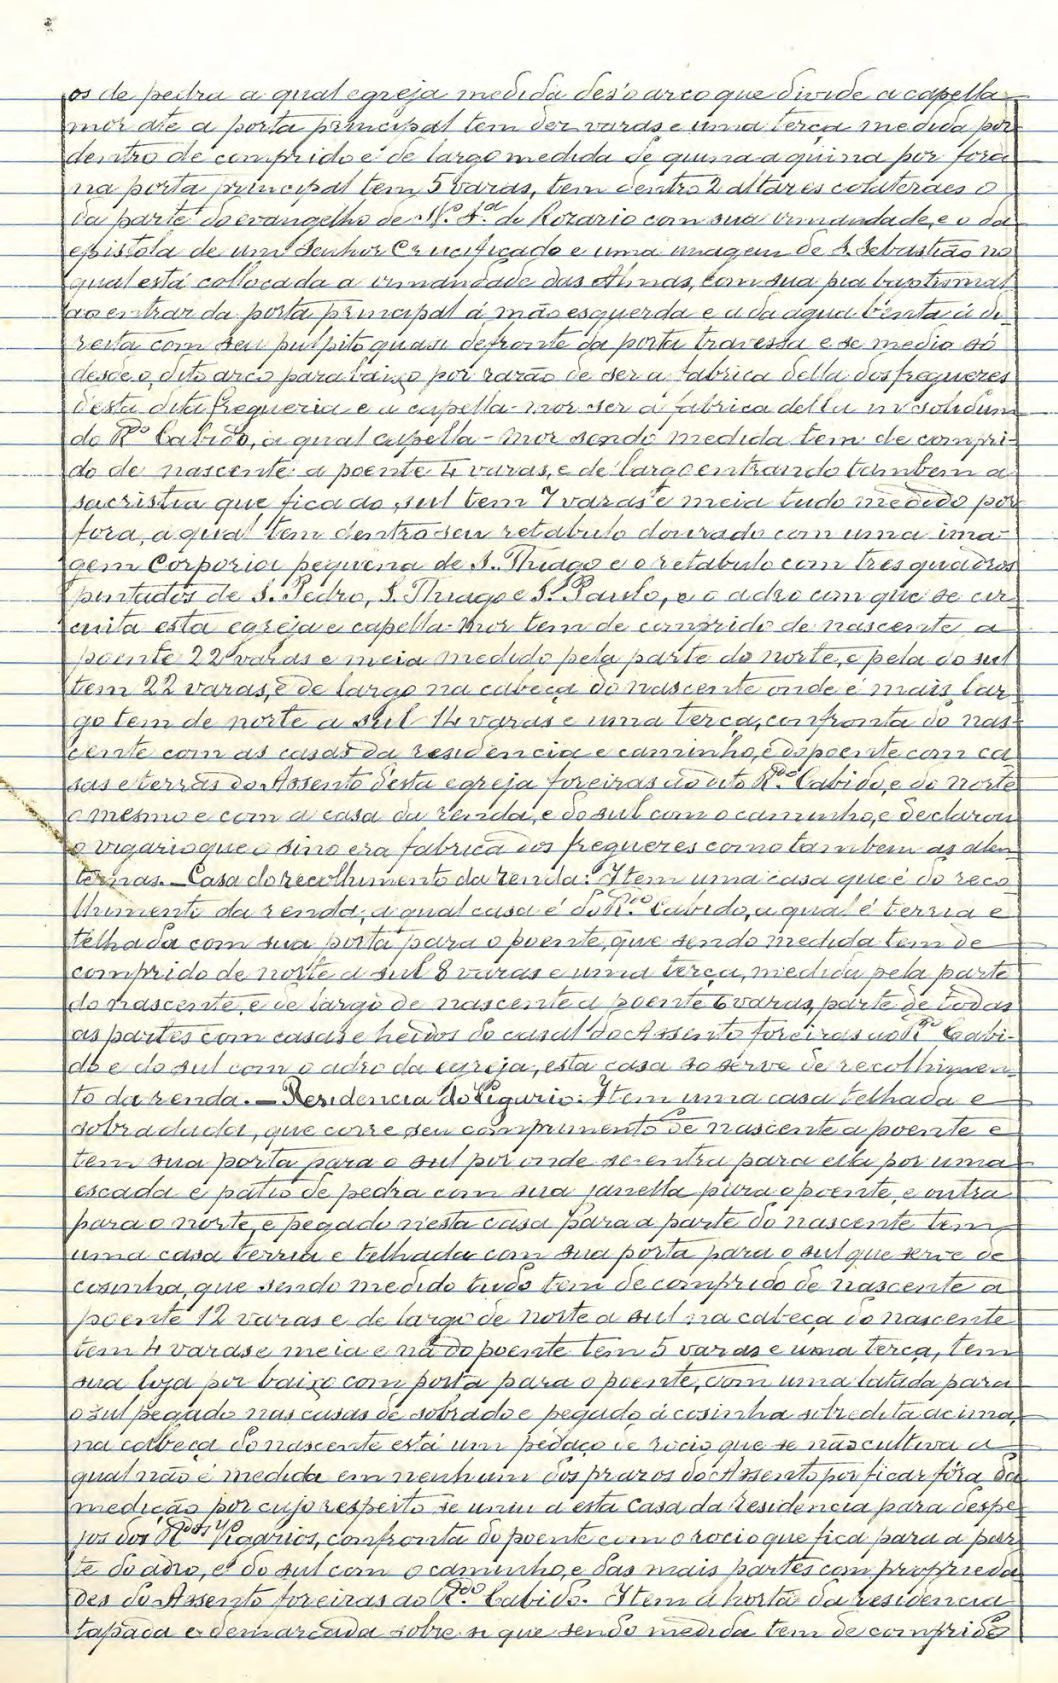 os de pedra a qual egreja medida des'o arco que divide a capella
mor até a porta principal tem dez varas e uma terça medida por
dentro de comprido e de largo medida de quina a quina por fora
na porta principal tem 5 varas, tem dentro 2 altares colateraes o
da parte do evangelho de N.ª S.ª do Rozario com sua irmandade, e o da
epistola de um Senhor Crucificado e uma imagem de S. Sebastião no
qual está collocada a irmandade das Almas, com sua pia bautismal
ao entrar da porta principal á mão esquerda e a da agua benta á di-
reita com seu pulpito quasi defronte da porta travessa e se medio só
desde o dito arco para baixo por razão de ser a fabrica della dos freguezes
desta dita fregueria e a capella-mor ser a fabrica della in solidum
do R.do Cabido, a qual capella-mor sendo medida tem de compri-
do de nascente a poente 4 varas, e de largo entrando tambem a
sacristia que fica do sul tem 7 varas e meia tudo medido por
fora, a qual tem dentro seu retabulo dourado com uma ima-
gem Corporia pequena de S. Thiago e o retabulo com tres quadros
pintados de S. Pedro, S. Thiago e S. Paulo, e o adro com que se cir-
cuita esta egreja e capella-mor tem de comprido de nascente a
poente 22 varas e meia medido pela parte do norte, e pela do sul
tem 22 varas, e de largo na cabeça do nascente onde é mais lar-
go tem de norte a sul 14 varas e uma terça, confronta do nas-
cente com as casas da residencia e caminho, e do poente com ca-
sas e terras do Assento desta egreja foreiras ao dito R.do Cabido, e do norte
o mesmo e com a casa da renda, e do sul com o caminho, e declarou
o vigario que o sino era fabrica dos freguezes como tambem as alen-
ternas. — Casa do recolhimento da renda: Item uma casa que é do reco-
lhimento da renda, a qual casa é do R.do Cabido, a qual é terria e
telhada com sua porta para o poente, que sendo medida tem de
comprido de norte a sul 8 varas e uma terça, medida pela parte
do nascente, e de largo de nascente a poente 6 varas, parte de todas
as partes com casas e heidos do casal do Assento foreiras ao R.do Cabi-
do e do sul com o adro da egreja, esta casa so serve de recolhimen-
to da renda. — Residencia do Vigario: Item uma casa telhada e
sobradada, que corre seu comprimento de nascente a poente e
tem sua porta para o sul por onde se entra para ella por uma
escada e patio de pedra com sua janella para o poente, e outra
para o norte, e pegado n'esta casa para a parte do nascente tem
uma casa terria e telhada com sua porta para o sul que serve de
cosinha, que sendo medido tudo tem de comprido de nascente a
poente 12 varas e de largo de norte a sul na cabeça do nascente
tem 4 varas e meia e na do poente tem 5 varas e uma terça, tem
sua loja por baixo com porta para o poente, com uma latada para
o sul pegado nas casas de sobrado e pegado á cosinha sobredita acima,
na cabeça do nascente está um pedaço de rocio que se não cultiva a
qual não é medida em nenhum dos prazos do Assento por ficar fóra da
medição por cujo respeito se uniu a esta casa da residencia para despe-
jos dos R.dos Vigarios, confronta do poente com o rocio que fica para a par-
te do adro, e do sul com o caminho, e das mais partes com proprieda-
des do Assento foreiras ao R.do Cabido. Item a horta da residencia
tapada e demarcada sobre si que sendo medida tem de comprido